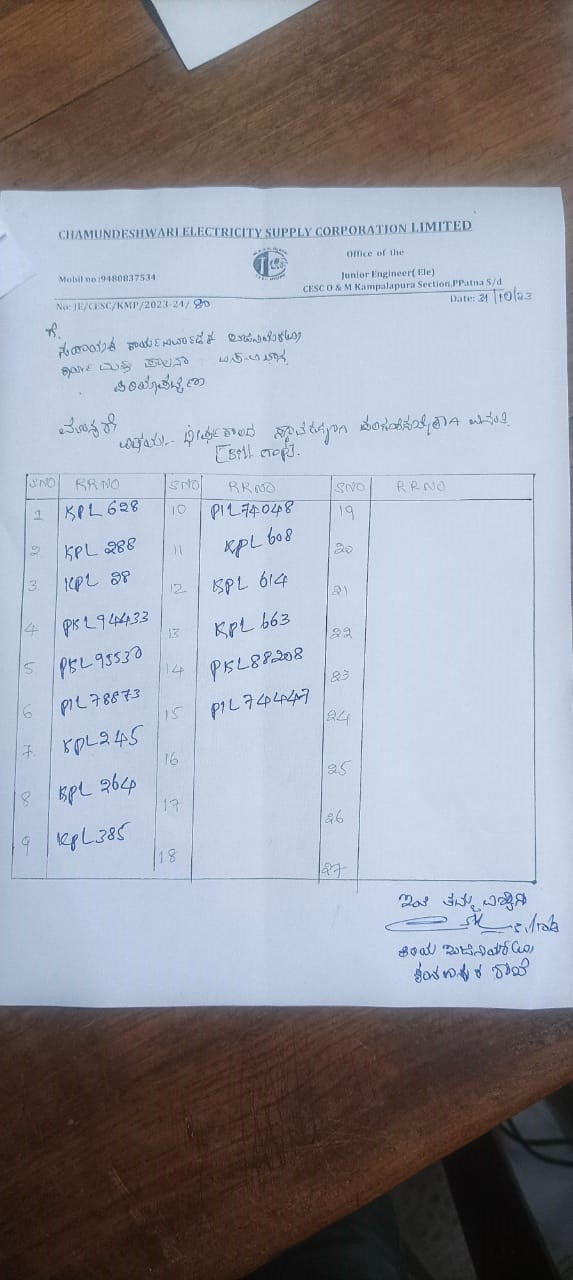 CHAMUNDESHWARI ELECTRICITY SUPPLY CORPORATION LIMITED
Office of the
Mobil no:9480837534
Junior Engineer( Ele)
CESC O & M Kampalapura Section,PPatna S/d
No: JE/CESC/KMP/2023-24/ 80
Date: 31/10/23
ಗೆ,
ಸಹಾಯಕ ಕಾರ್ಯನಿರ್ವಾಹಕ ಇಂಜಿನಿಯರು
ಕಾರ್ಯ ಮತ್ತು ಪಾಲನಾ
ಪಿರಿಯಾಪಟ್ಟಣ
ಮಾನ್ಯರೇ
ವಿಷಯ:-
[Bill
SNO RRNO SNO RRNO SNO RRNO
1 KPL 628 10 PIL74048 19
2 KPL 288 11 KPL 608 20
3 KPL 28 12 KPL 614 21
4 PKL94433 13 KPL 663 22
5 PKL95530 14 PKL88208 23
6 PIL78873 15 PIL74447 24
7 KPL245 16 25
8 KPL 264 17 26
9 KPL385 18 27
ಇಂತಿ ತಮ್ಮ ವಿಶ್ವಾಸಿ
ಕಿರಿಯ ಇಂಜಿನಿಯರ್
ಕಂಪಲಾಪುರ ಶಾಖೆ